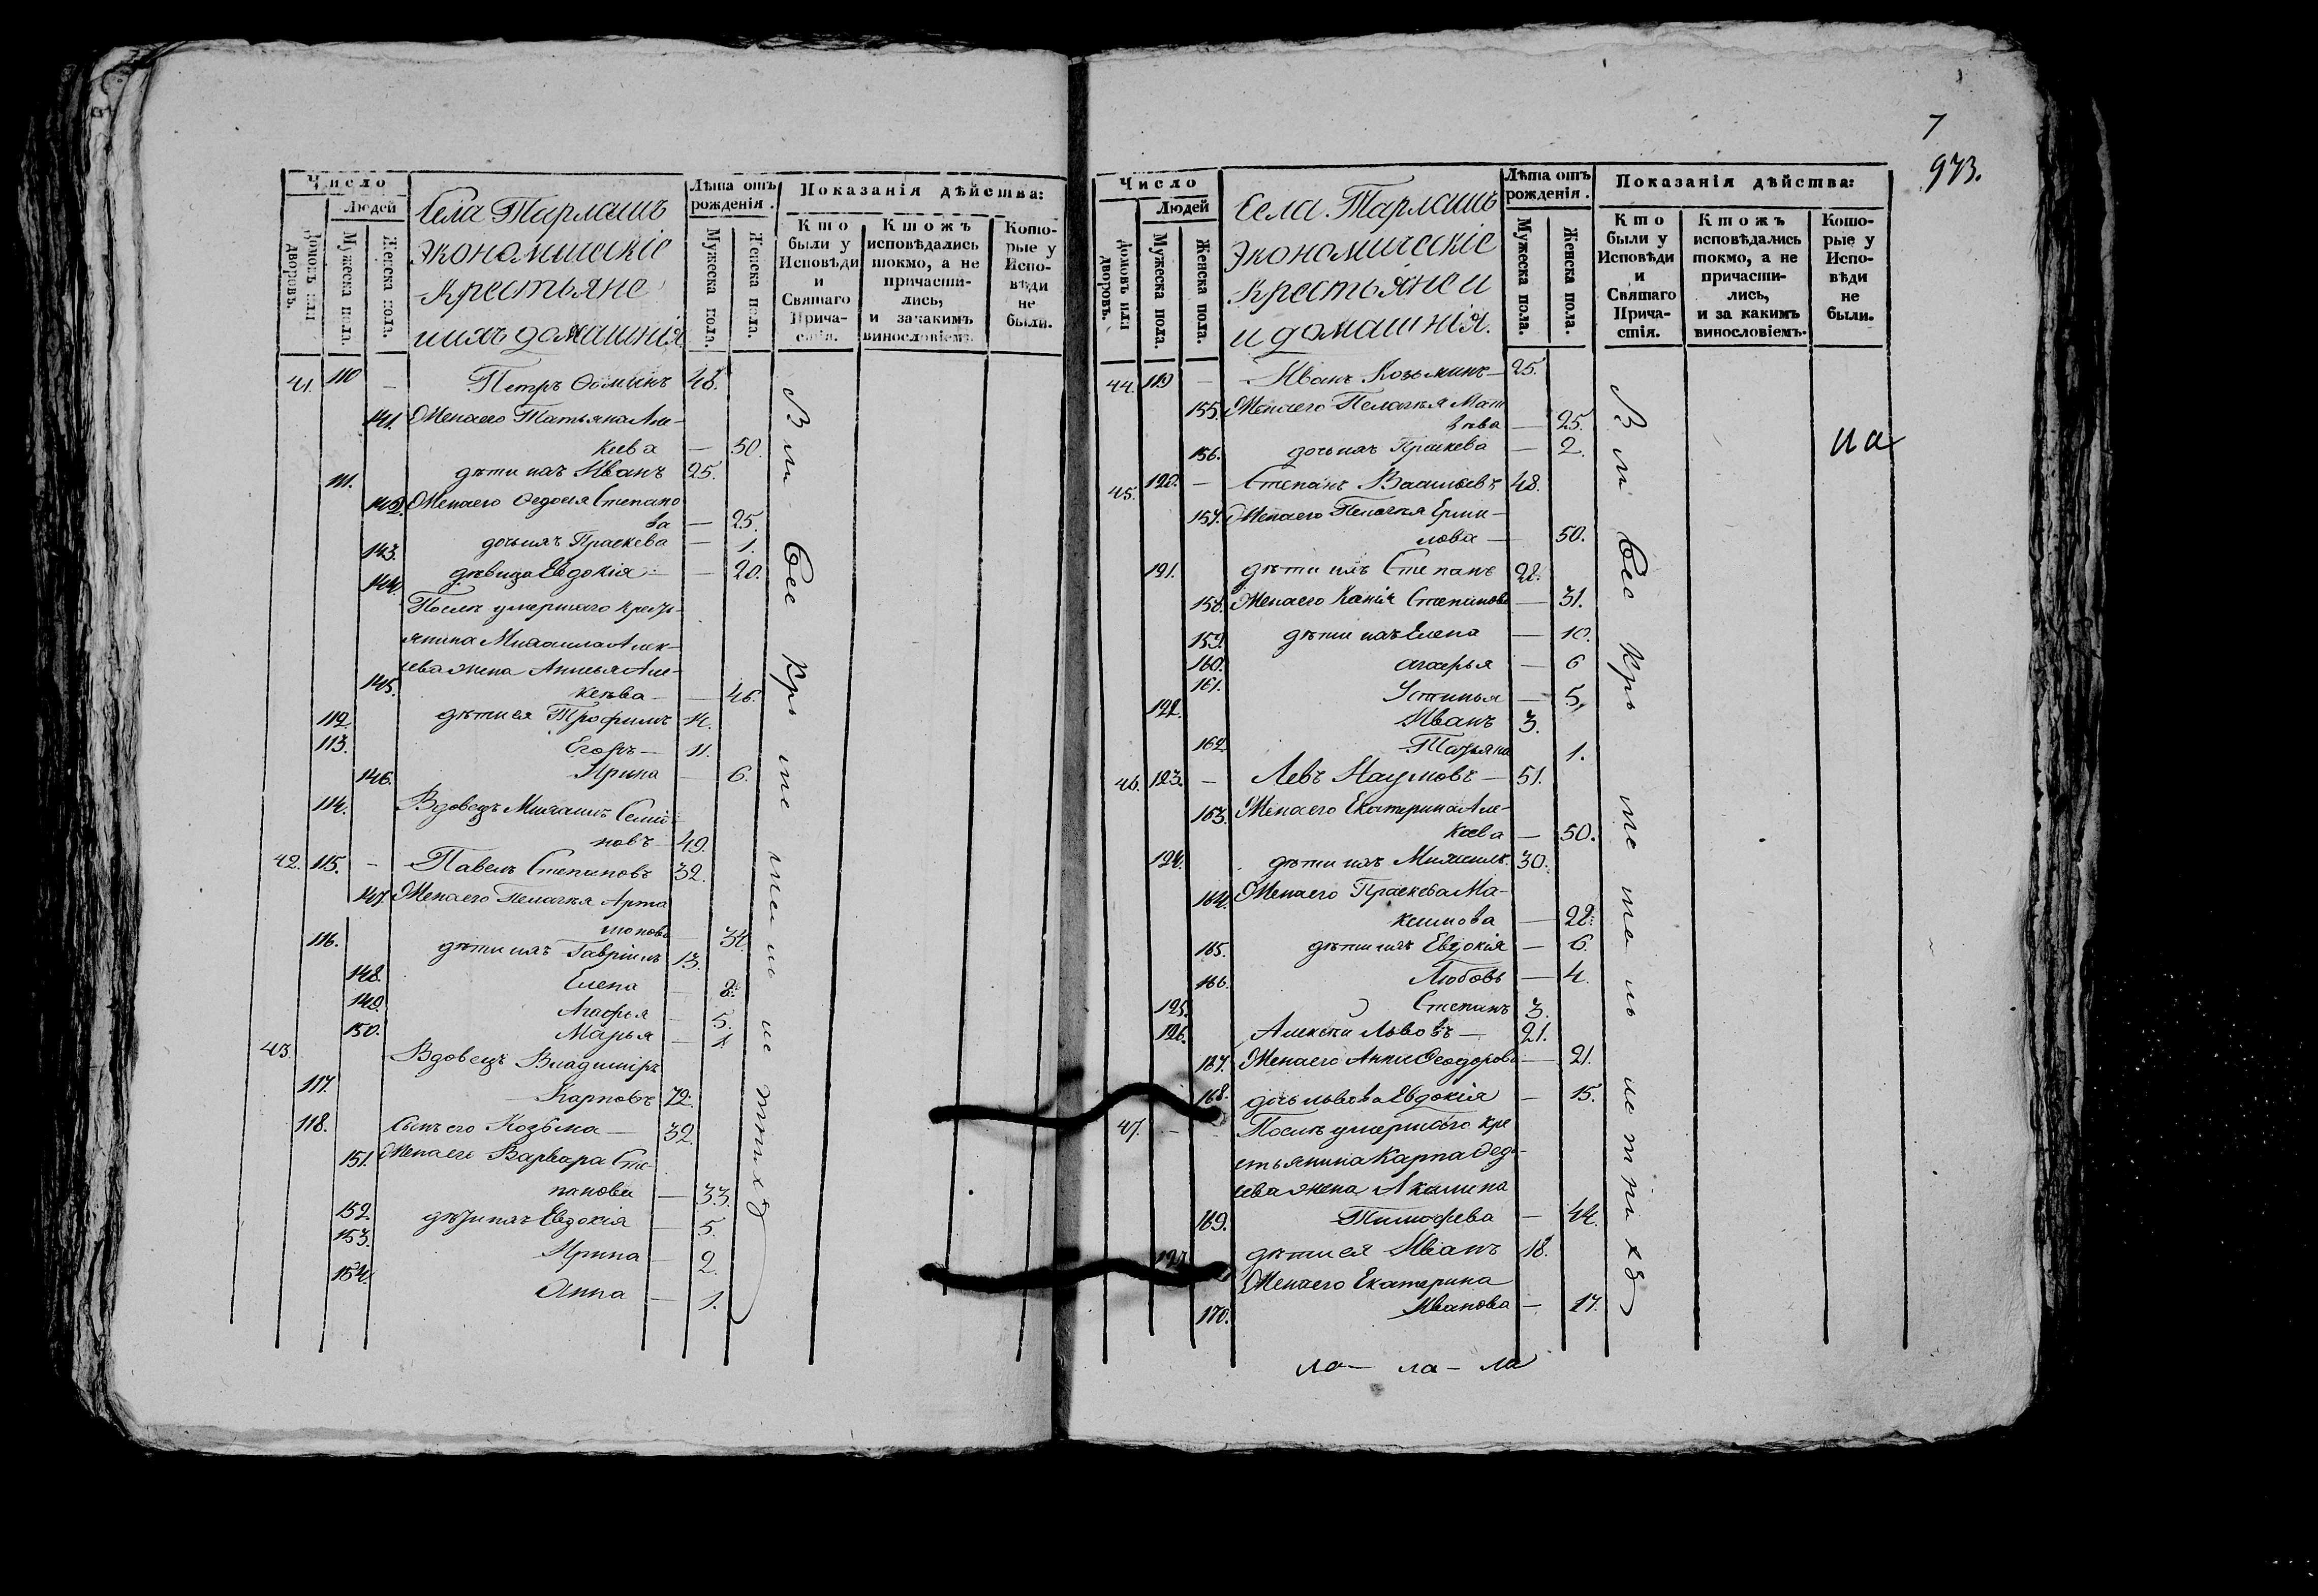 Число
Людей
Домовъ или дворовъ.
Мужеска пола.
Женска пола.
Села Тарлашъ
Экономическіе
крестьяне
и ихъ домашнія
Лѣта отъ рожденія.
Мужеска пола.
Женска пола.
Показанія дѣйства:
Кто были у Исповѣди и Святаго Прича-стія.
Ктожъ исповѣдались токмо, а не причасти-лись, и за какимъ винословіемъ.
Кото-рые у Испо-вѣди не были.
41. 110 — Петръ Ѳоминъ 48.
141. Жена его Татьяна Але-
ксѣева — 50.
111. дѣти ихъ Иванъ 25.
142. Жена его Ѳедосія Степано
ва — 25.
143. дочь ихъ Праскева — 1.
144. дѣвица Евдокія — 20.
Послѣ умершаго кресть-
янина Михаила Алек-
ѣева жена Анисья Але-
145. ксѣева — 46.
112. дѣти ея Трофимъ 14.
113. Егоръ — 11.
146. Ирина — 6.
114. Вдовецъ Михаилъ Семіо-
новъ 49.
42. 115. — Павелъ Степановъ 32.
147. Жена его Пелагѣя Арта
монова 34.
116. дѣти ихъ Гавріилъ 13.
148. Елена 8.
149. Агафья — 5.
150. Марья — 1.
43. Вдовецъ Владиміръ
117. Карповъ 72.
118. Сынъ его Козьма — 32.
151. Жена его Варвара Сте-
панова — 33.
152. дѣти ихъ Евдокія — 5.
153. Ирина — 2.
154. Анна — 1.
7
973.
Число
Людей
Домовъ или дворовъ.
Мужеска пола.
Женска пола.
Села Тарлашъ
Экономическіе
крестьяне и
и домашнія.
Лѣта отъ рожденія.
Мужеска пола.
Женска пола.
Показанія дѣйства:
Кто были у Исповѣди и Святаго Прича-стія.
Ктожъ исповѣдались токмо, а не причасти-лись, и за какимъ винословіемъ.
Кото-рые у Испо-вѣди не были.
44. 119 — Иванъ Козьминъ — 25.
155. Жена его Пелагѣя Мат
вѣева — 25.
156. дочь ихъ Праскева — 2.
45. 120. — Степанъ Васильевъ 48.
157. Жена его Пелагѣя Ермо-
лова — 50.
121. дѣти ихъ Степанъ 28.
158. Жена его Ксенія Степанова — 31.
159. дѣти ихъ Елена — 10.
160. Агафья — 6
161. Устинья — 5.
122. Иванъ 3.
162. Татьяна 1.
46. 123. — Левъ Наумовъ — 51.
163. Жена его Екатерина Але-
ксѣева — 50.
124. дѣти ихъ Михаилъ 30.
164. Жена его Праскева Ма-
ксимова — 28.
165. дѣти ихъ Евдокія — 6.
166. Любовь — 4.
125. Степанъ 3.
126. Алексѣй Львовъ — 21.
167. Жена его Анна Ѳеодорова — 21.
168. дочь львова Евдокія — 15.
47. — Послѣ умершаго кре
стьянина Карпа Ѳедо-
ева жена Акилина
169. Тимофѣева — 44.
127. дѣти ея Иванъ 18.
Жена его Екатерина
170. Иванова — 17.
на
ла — ла — ла